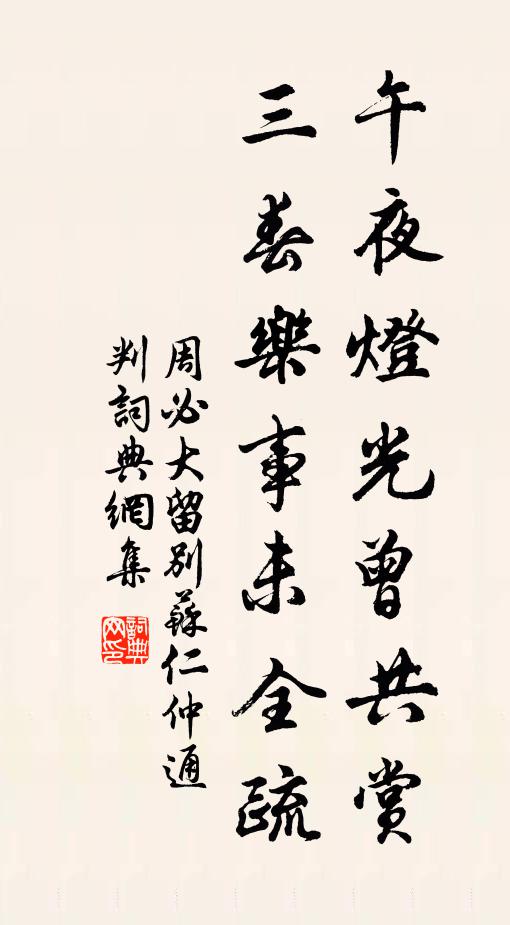 午夜燈光曾共賞
三春樂事未全疏
周必大留別蘇仁仲通
判詞典網集
詞典网印